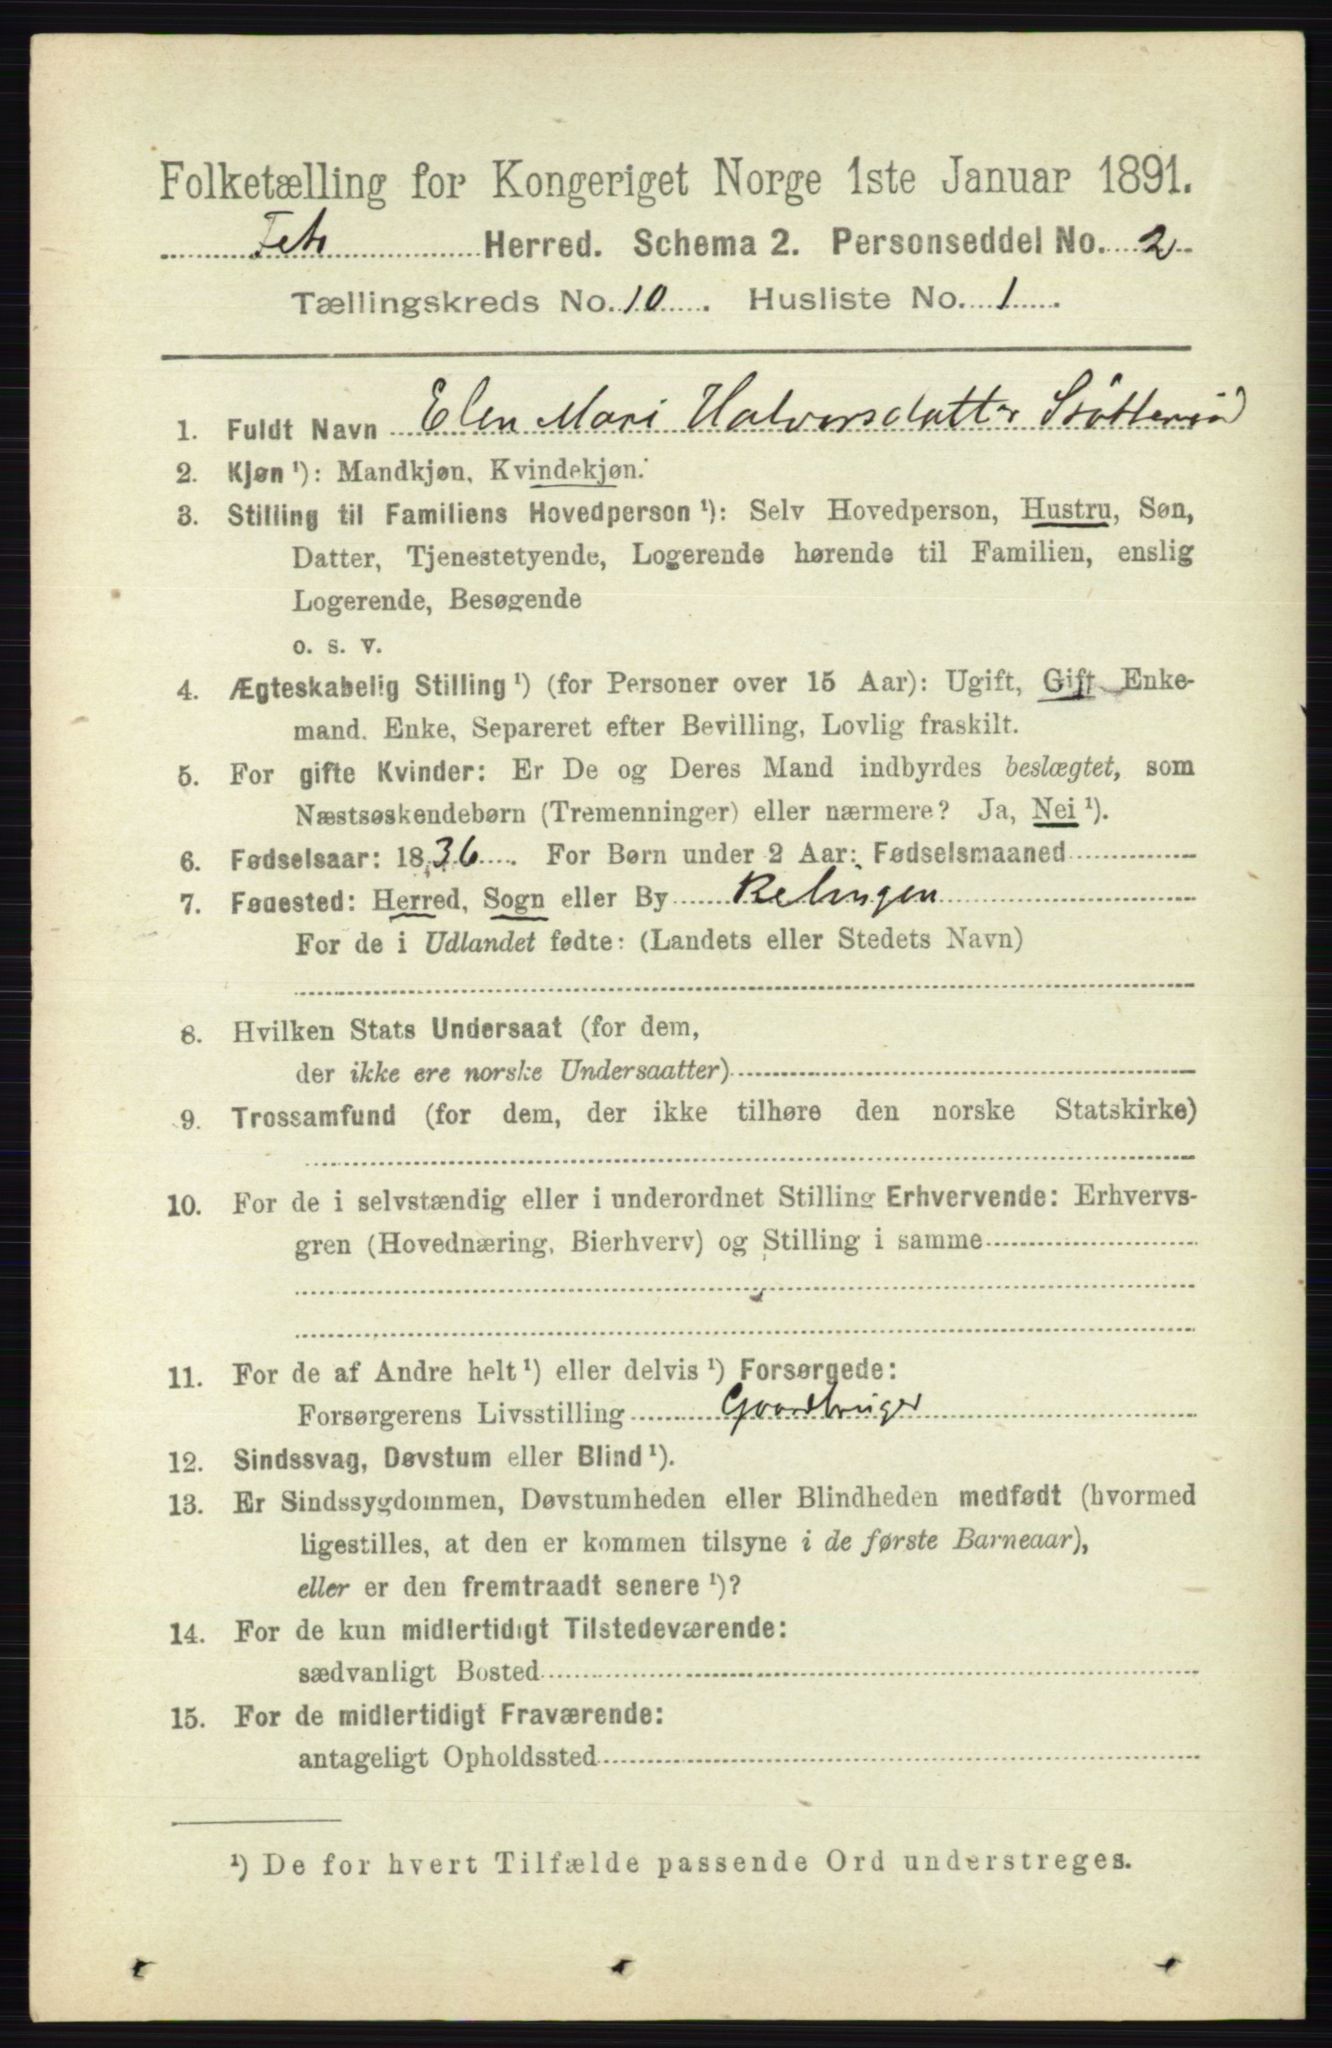 Folketælling for Kongeriget Norge 1ste Januar 1891.
Fet Herred. Schema 2. Personseddel No. 2
Tællingskreds No. 10. Husliste No. 1.
1. Fuldt Navn Elen Mari Halvorsdatter Støtterud
2. Kjøn ¹): Mandkjøn, Kvindekjøn.
3. Stilling til Familiens Hovedperson ¹): Selv Hovedperson, Hustru, Søn,
Datter, Tjenestetyende, Logerende hørende til Familien, enslig
Logerende, Besøgende
o. s. v.
4. Ægteskabelig Stilling ¹) (for Personer over 15 Aar): Ugift, Gift, Enke-
mand. Enke, Separeret efter Bevilling, Lovlig fraskilt.
5. For gifte Kvinder: Er De og Deres Mand indbyrdes beslægtet, som
Næstsøskendebørn (Tremenninger) eller nærmere? Ja, Nei ¹).
6. Fødselsaar: 1836. For Børn under 2 Aar: Fødselsmaaned
7. Fødested: Herred, Sogn eller By Relingen
For de i Udlandet fødte: (Landets eller Stedets Navn)
8. Hvilken Stats Undersaat (for dem,
der ikke ere norske Undersaatter)
9. Trossamfund (for dem, der ikke tilhøre den norske Statskirke)
10. For de i selvstændig eller i underordnet Stilling Erhvervende: Erhvervs-
gren (Hovednæring, Bierhverv) og Stilling i samme
11. For de af Andre helt ¹) eller delvis ¹) Forsørgede:
Forsørgerens Livsstilling Gaardbruger
12. Sindssvag, Døvstum eller Blind ¹).
13. Er Sindssygdommen, Døvstumheden eller Blindheden medfødt (hvormed
ligestilles, at den er kommen tilsyne i de første Barneaar),
eller er den fremtraadt senere ¹)?
14. For de kun midlertidigt Tilstedeværende:
sædvanligt Bosted
15. For de midlertidigt Fraværende:
antageligt Opholdssted
¹) De for hvert Tilfælde passende Ord understreges.